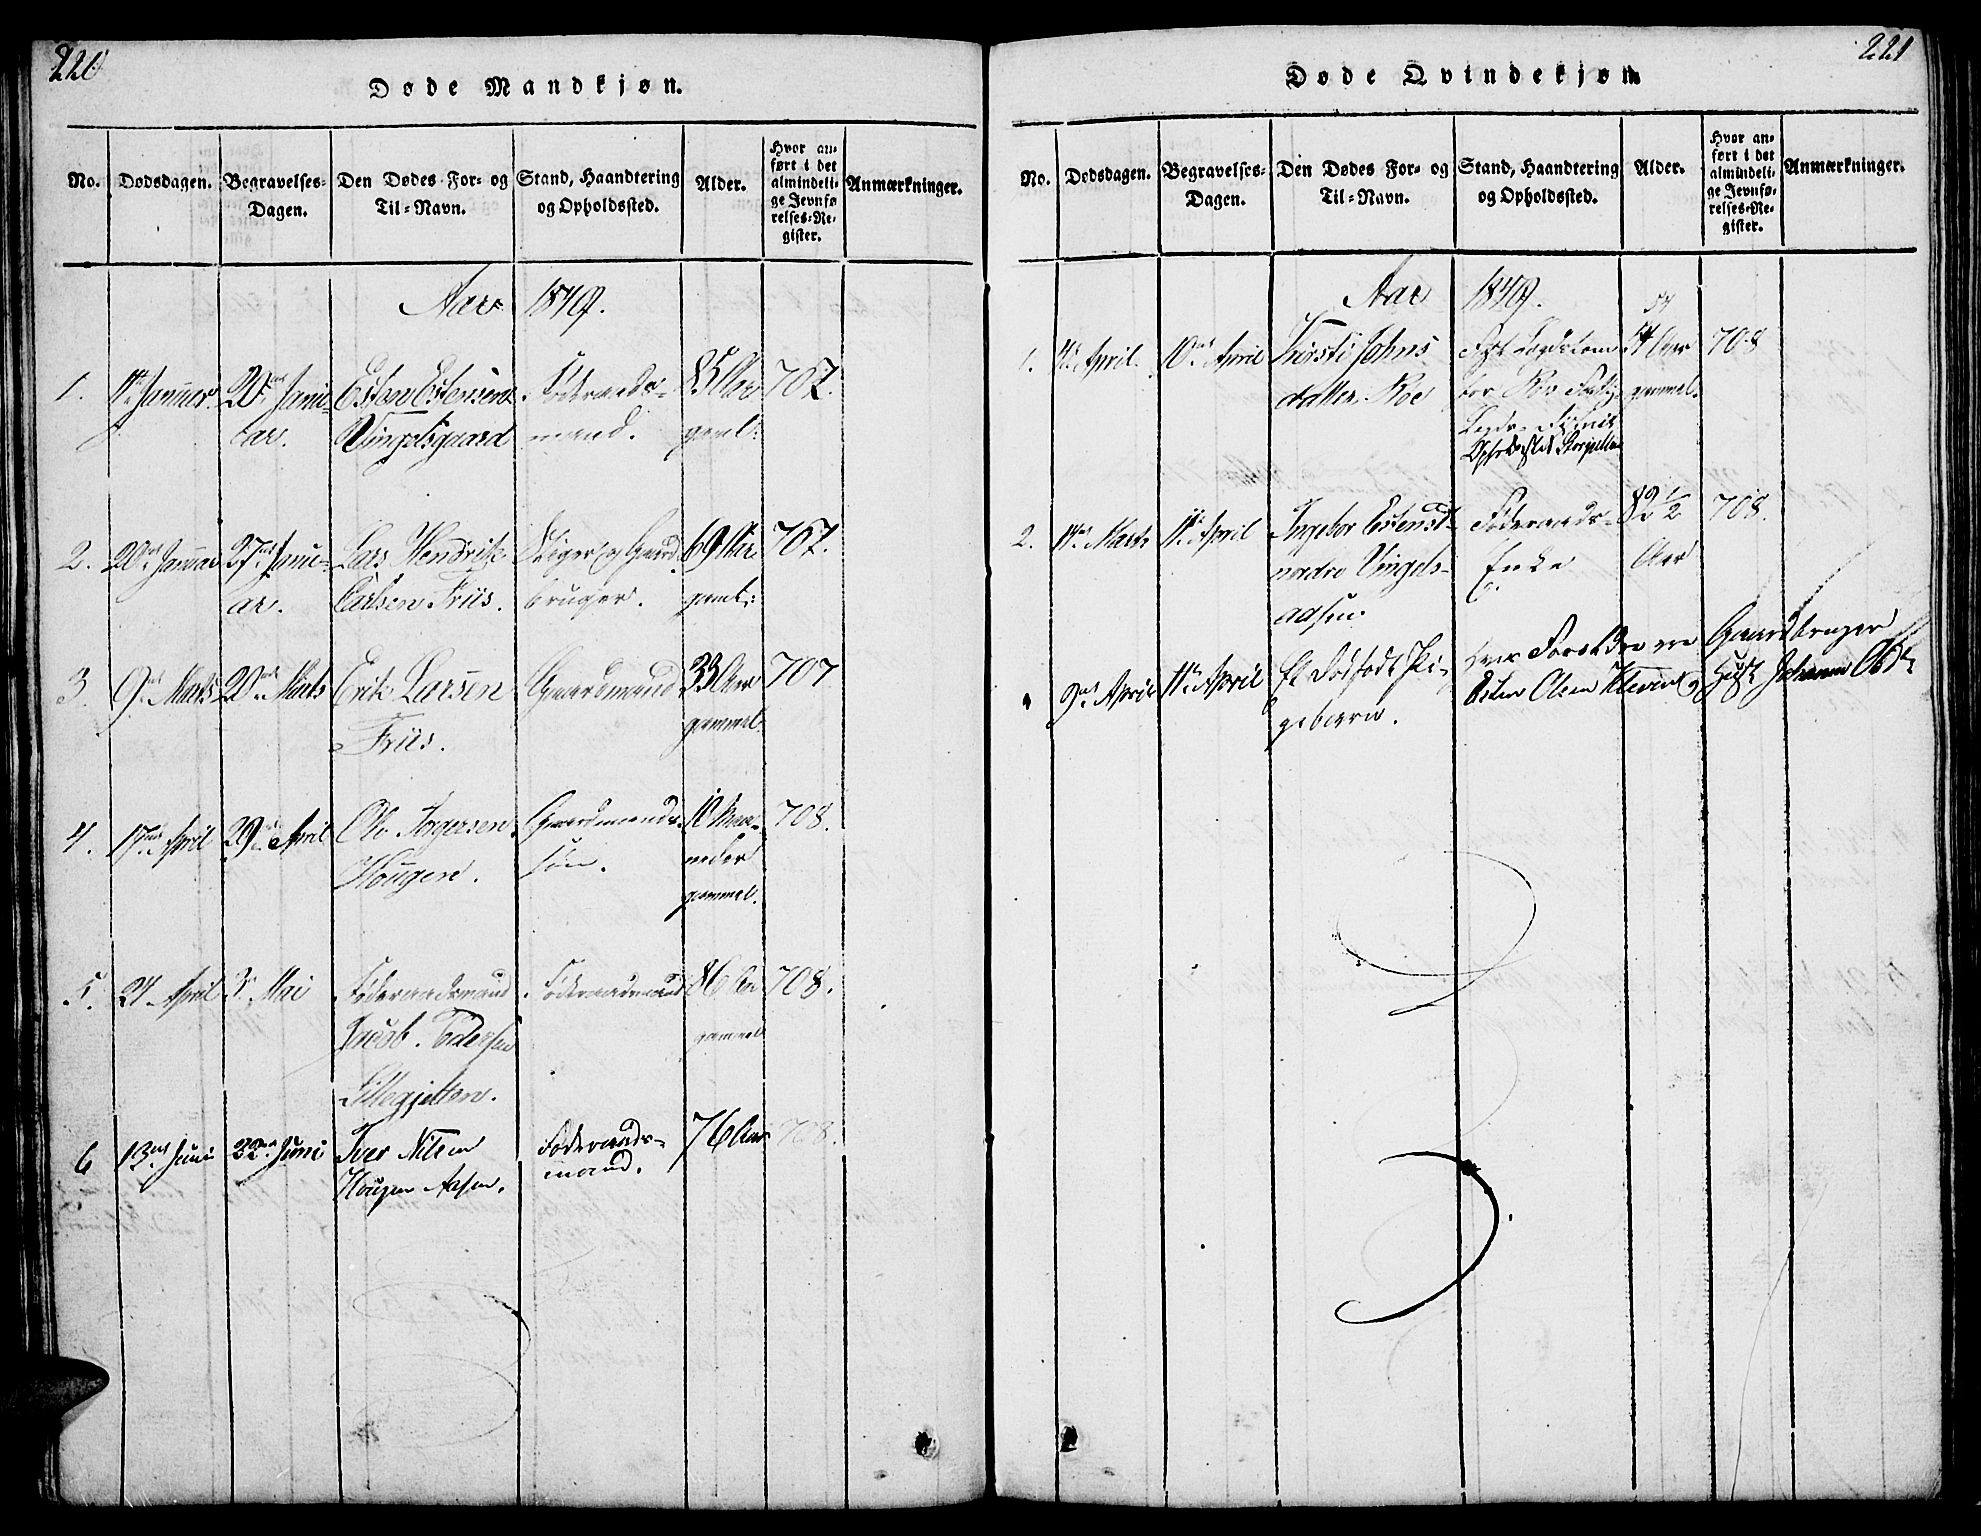 220
Døde Mandkjøn.
No.
Dødsdagen.
Begravelses-
Dagen.
Den Dødes For- og
Til-Navn.
Stand, Haandtering
og Opholdssted.
Alder.
Hvor an-
ført i det
almindeli-
ge Jevnfø
relses-Re-
gister.
Anmærkninger.
Aar 1849.
1.
Januar.
20de Janu-
ar.
Esten Estensen
Vingelsgaard
Føderaads-
mand.
85 Aar
gaml:
707.
2.
20de Januar
27de Janu-
ar.
Lars Hendrik
Carlsen Friis.
og Gaard
bruger.
69 Aar
gaml:
707.
3
9de Marts
20de Marts
Erik Larsen
Friis.
Gaardmand
33 Aar
gammel.
707
4.
17de April
29de April
Ole Jngersen
Hougen.
Gaardmands
søn.
10 Maa-
neder
gammel.
708.
5.
24 April
3 Mai
Føderaadsmand
Jacob Pedersen
Lillegjelten.
Føderaadsmand
86 Aar
gammel
708.
6
13de Juni
22de Juni
Iver Nilsen
Hougen Aasen.
Føderaads-
mand.
76 Aar
708.
221
Døde Qvindekjøn
No.
Dødsdagen.
Begravelses-
Dagen.
Den Dødes For- og
Til-Navn.
Stand, Haandtering
og Opholdssted.
Alder.
Hvor an-
ført i det
almindeli-
ge Jevnfø-
relses-Re-
gister.
Anmærkninger.
Aar 1849.
1.
April.
10de April
Kirsti Johns
datter Roe
54
Aar
gammel.
708
2.
14de Marts
11te April
Ingebor Estensd-
nedre Vingels-
aasen.
Føderaads-
Enke
82 1/2
Aar
708.
9de April
11te April
Et dødfødt Pi-
gebarn.
Forældre ere Gaardbruger
Esten Olsen og Hust Johanne Olsdr